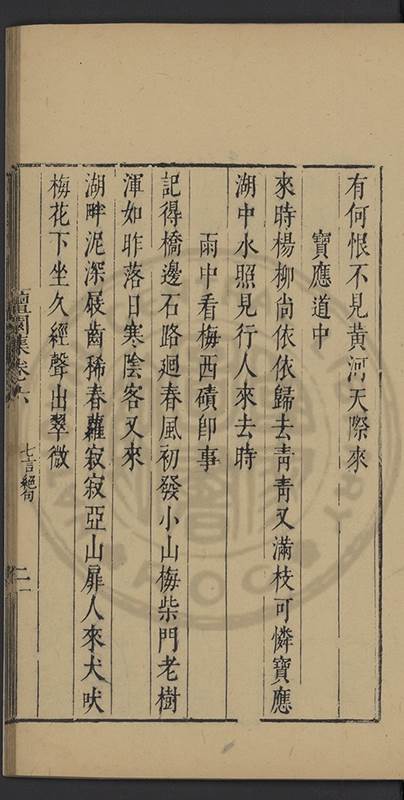 有何恨不見黃河天際來
寶應道中
來時楊柳尚依依歸去青青又滿枝可憐寶應
湖中水照見行人來去時
雨中看梅西磧即事
記得橋邊石路迴春風初發小山梅柴門老樹
渾如昨落日寒陰客又來
湖畔泥深屐齒稀春蘿寂寂亞山扉人來犬吠
梅花下坐久經聲出翠微
園集卷六 七言絕句 二